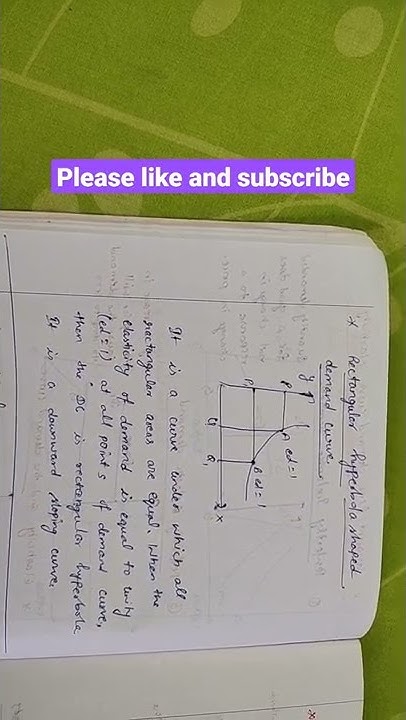 Please like and subscribe
* Rectangular hyperbola shaped
demand curve
y
P
A ed = 1
P1
B ed = 1
Q
Q1
x
It is a curve under which all
rectangular areas are equal. When the
elasticity of demand is equal to unity
(ed = 1) at all points of demand curve,
then the DC is rectangular hyperbola
It is a downward sloping curve.